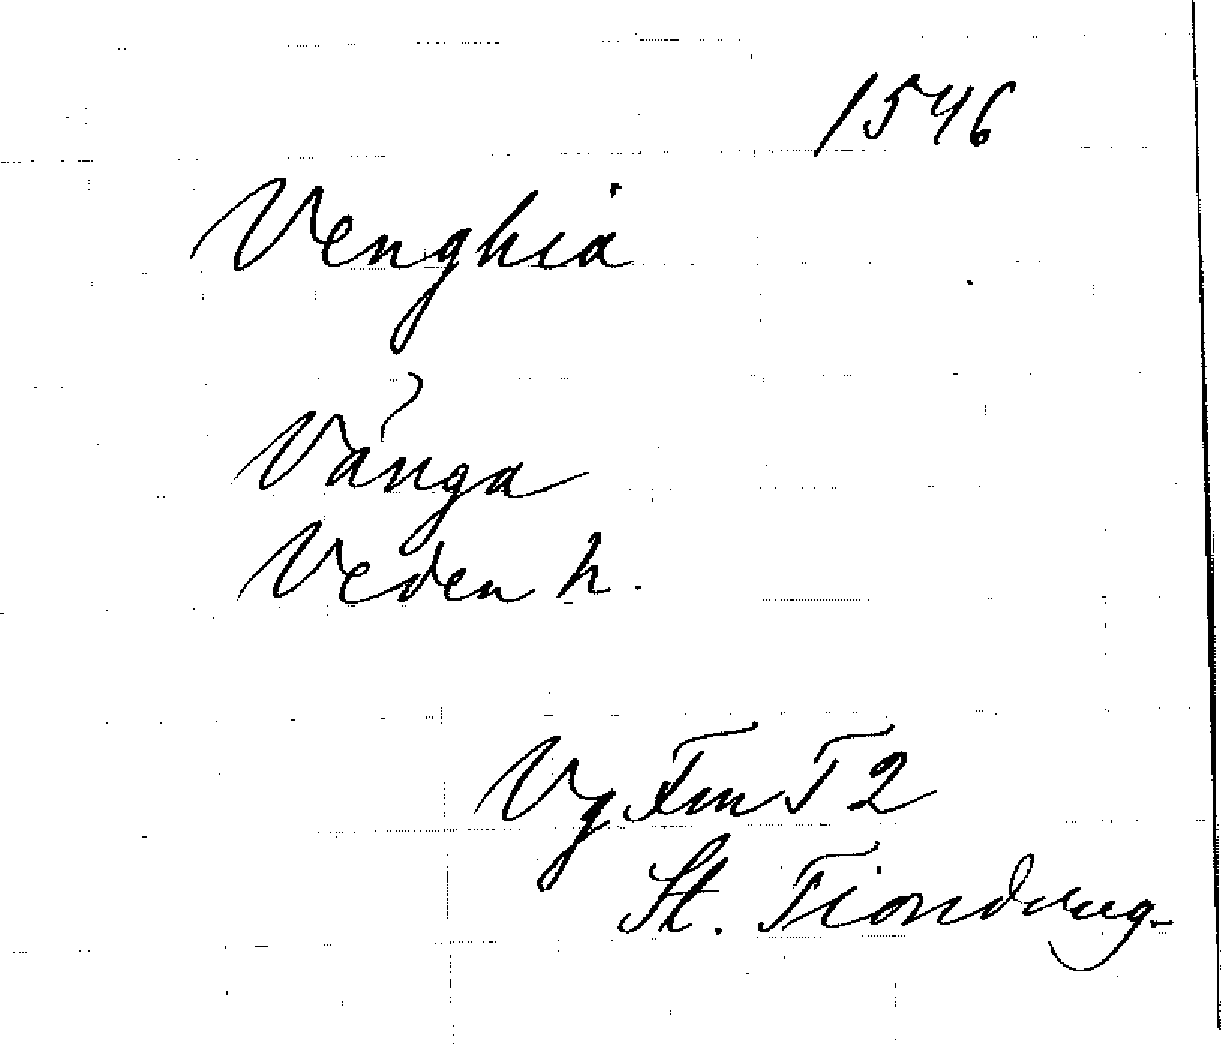 1546
Venghia
Vånga
Veden h.
Vg Fm T 2
St. Tiondeug.